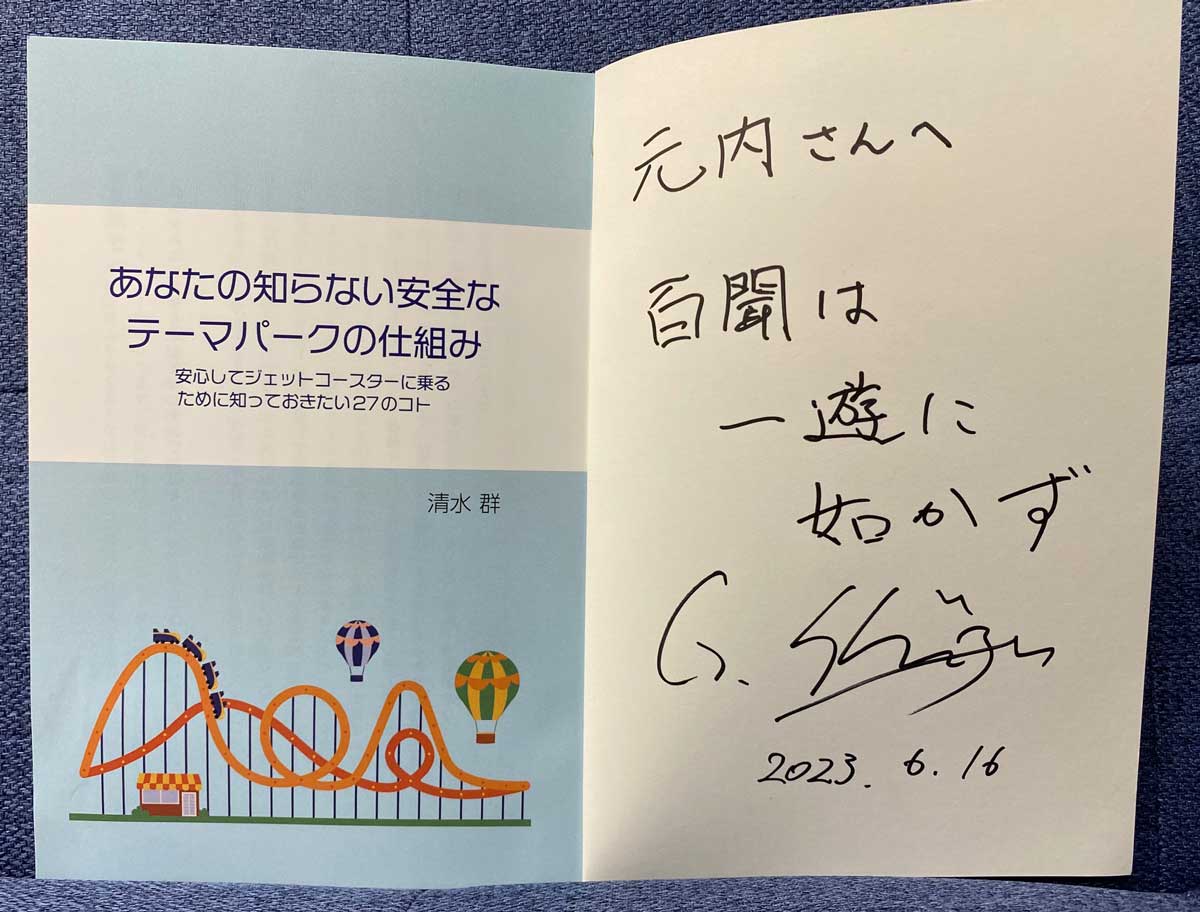 あなたの知らない安全な
テーマパークの仕組み
安心してジェットコースターに乗る
ために知っておきたい27のコト
清水 群
元内さんへ
百聞は
一遊に
如かず
G.
2023. 6. 16